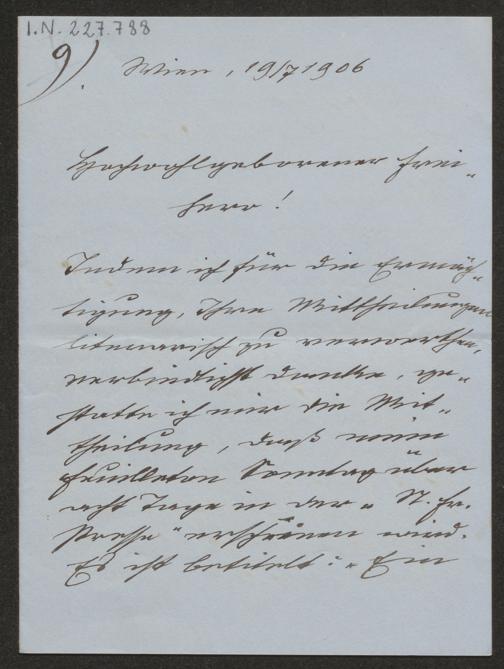 I.N. 227.788
9)
Wien, 19/7 1906
Hochwohlgeborener Frei-
herr!
Indem ich für die Ermäch-
tigung, Ihre Mittheilungen
literarisch zu verwerthen,
verbindlichst danke, ge-
statte ich mir die Mit-
theilung, daß mein
Feuilleton Sonntag über
acht Tage in der „N. Fr.
Presse" erscheinen wird.
Es ist betitelt: „Ein